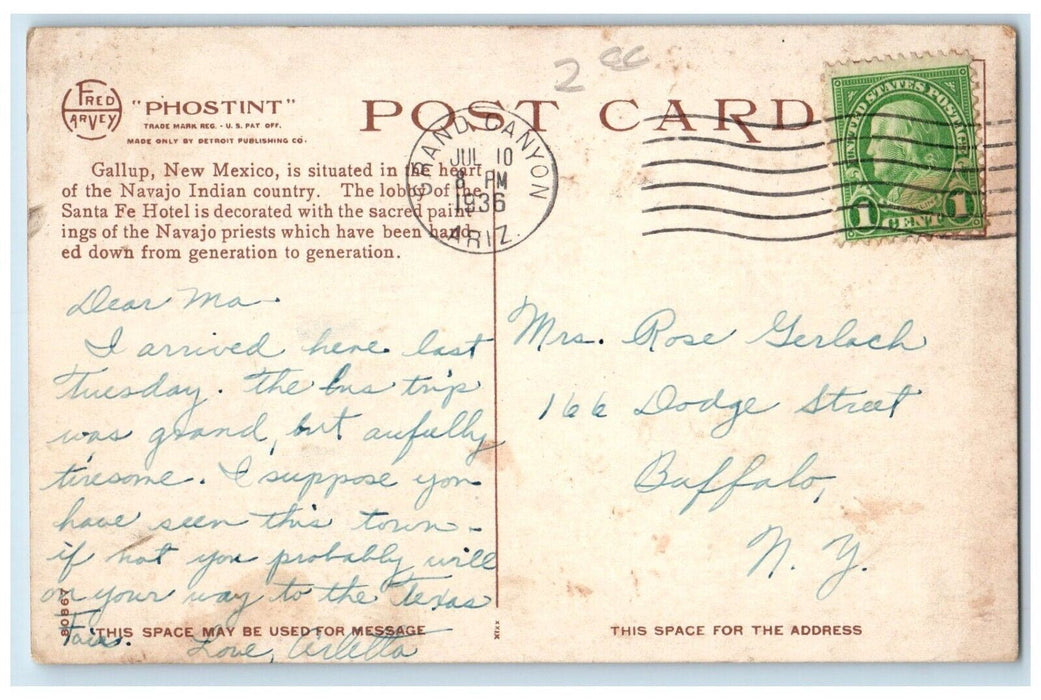 2 00
FRED
HARVEY
"PHOSTINT"
TRADE MARK REG. - U.S. PAT. OFF.
MADE ONLY BY DETROIT PUBLISHING CO.
POST CARD
GRAND CANYON
JUL 10
8 PM
1936
ARIZ.
UNITED STATES POSTAGE
1 CENT 1
Gallup, New Mexico, is situated in the heart
of the Navajo Indian country. The lobby of the
Santa Fe Hotel is decorated with the sacred paint-
ings of the Navajo priests which have been hand-
ed down from generation to generation.
Dear Ma-
I arrived here last
Tuesday. The bus trip
was grand, but aufully
tiresome. I suppose you
have seen this town -
if not you probably will
on your way to the Texas
Fair.
Love, Arletta
Mrs. Rose Gerlach
166 Dodge Street
Buffalo,
N. Y.
80867
THIS SPACE MAY BE USED FOR MESSAGE
THIS SPACE FOR THE ADDRESS